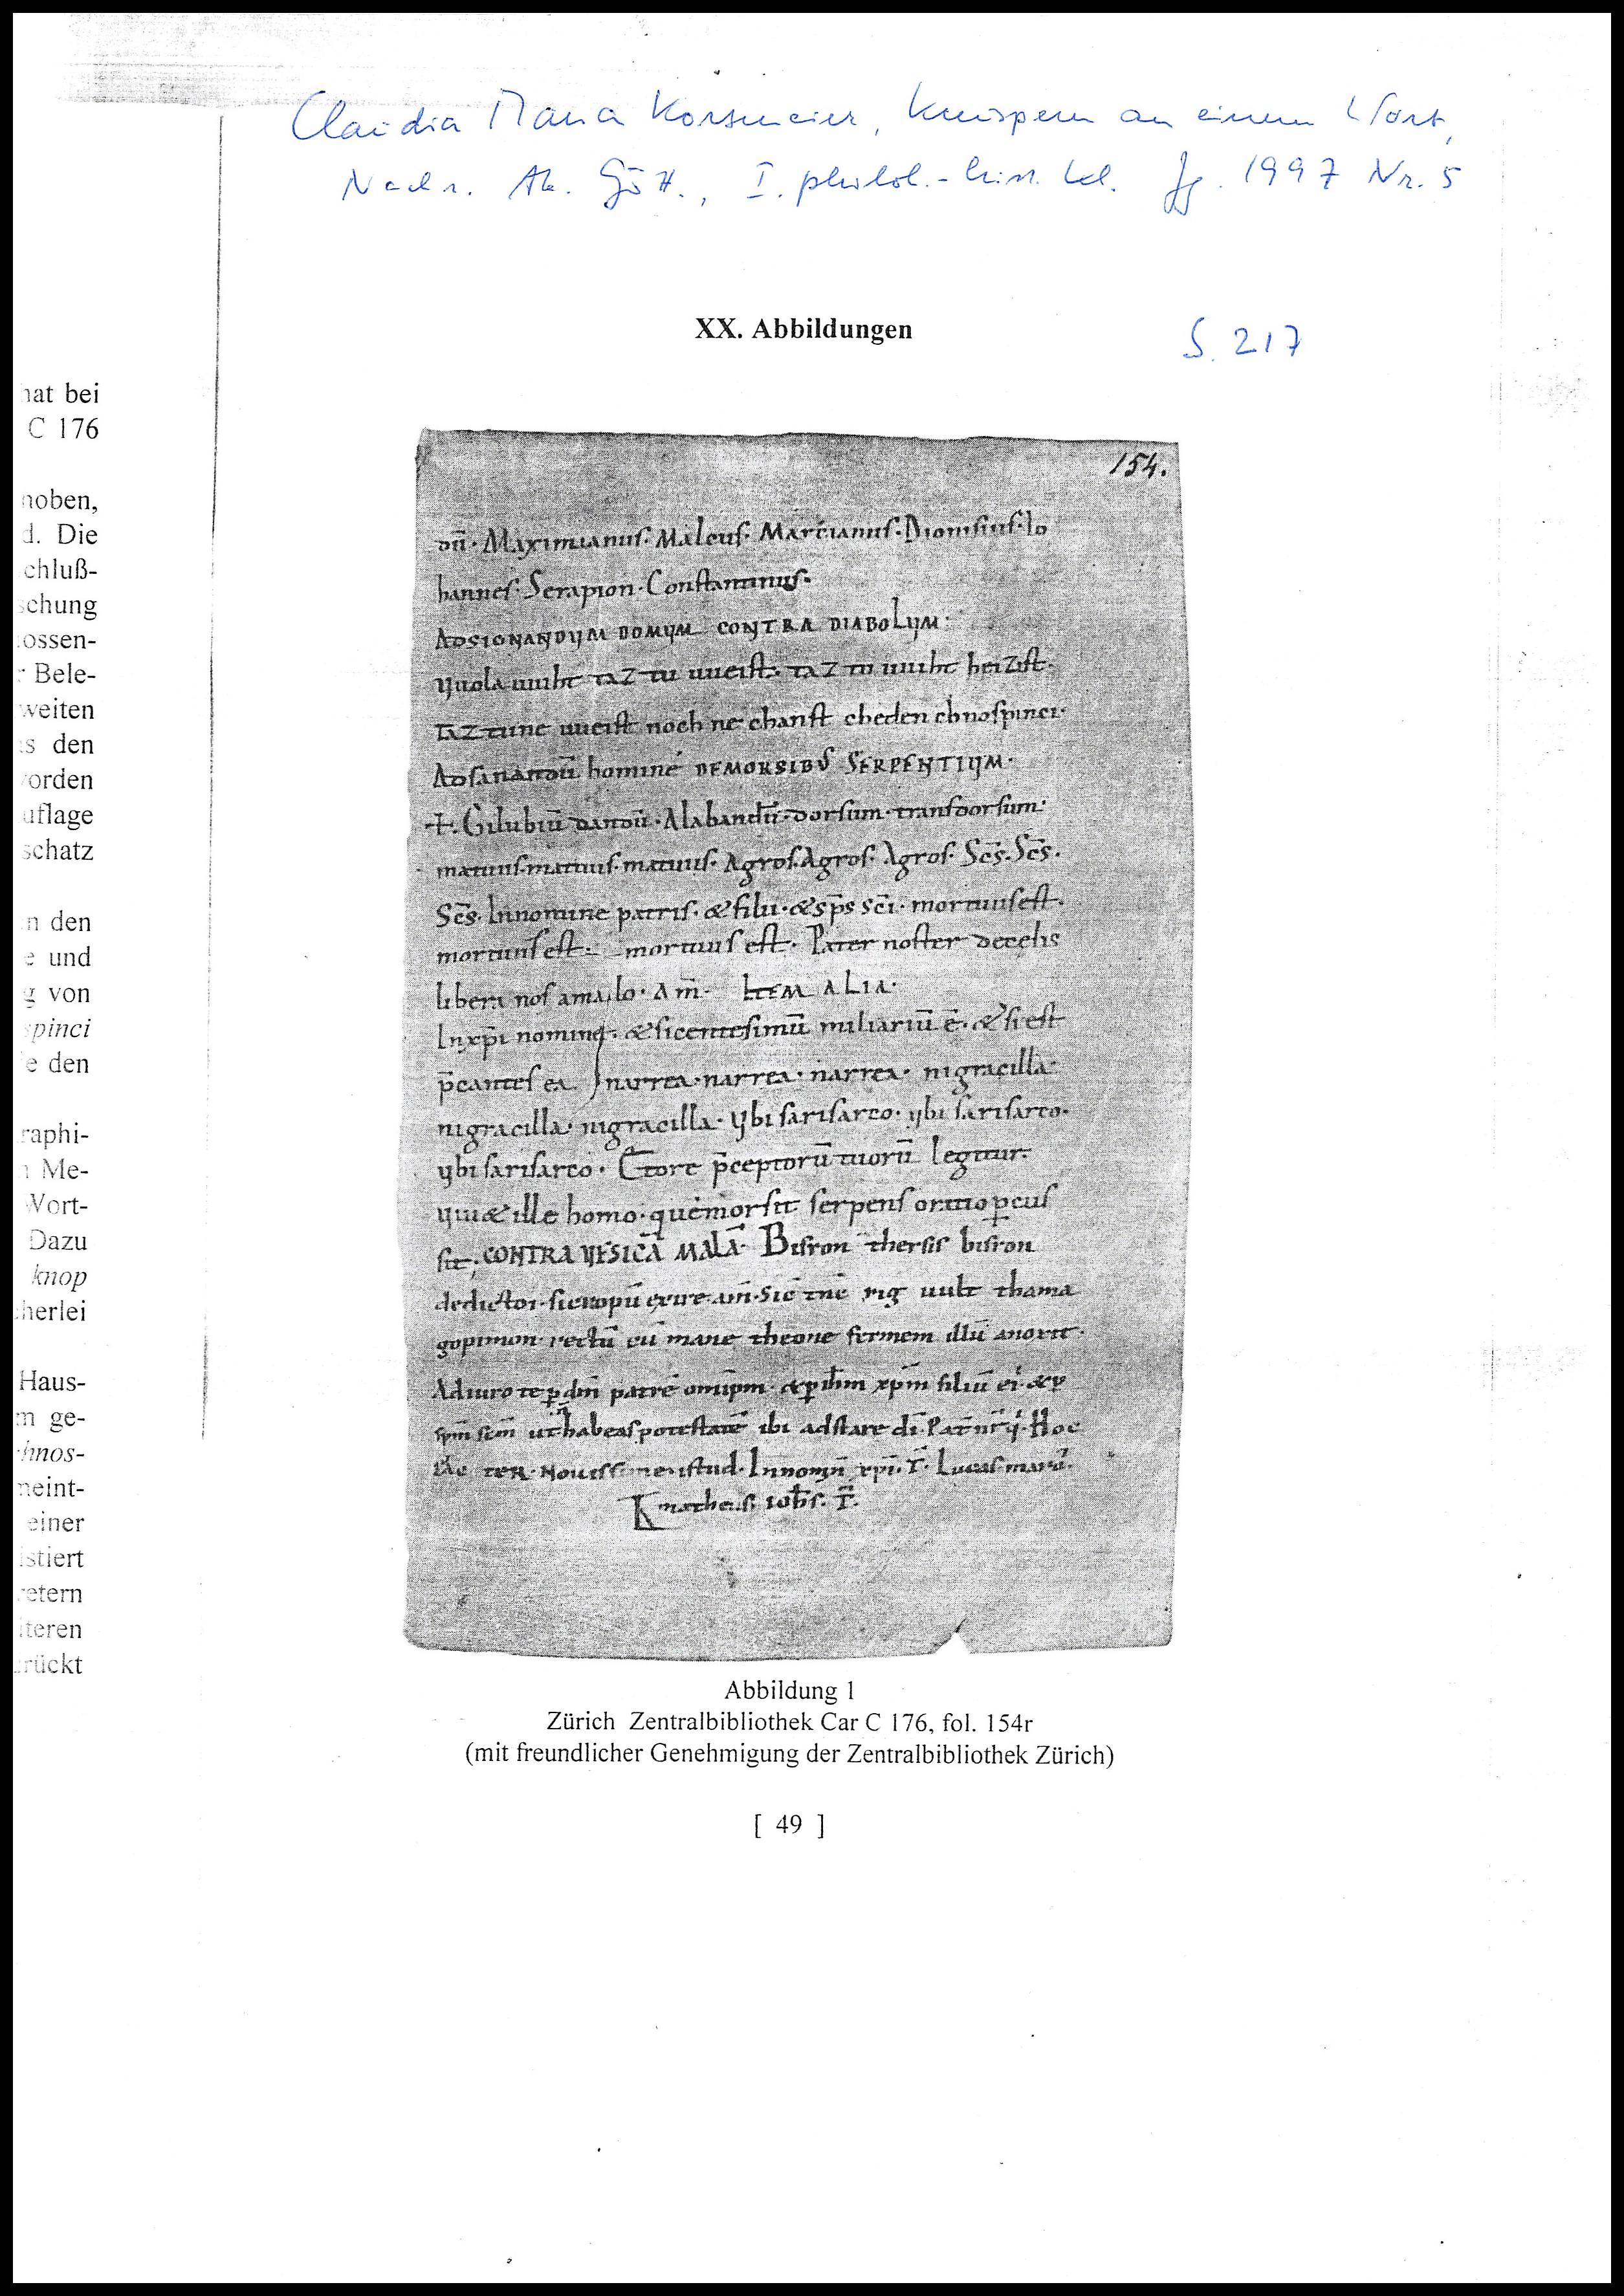 Claudia Maria Korsmeier, Knuspern an einem Wort,
Nachr. Ak. Gött., I. philol.-hist. Kl. Jg. 1997 Nr. 5
XX. Abbildungen
S. 217
hat bei
C 176
hoben,
d. Die
chluß-
schung
ossen-
r Bele-
weiten
s den
orden
uflage
schatz
n den
e und
g von
pinci
e den
raphi-
n Me-
Wort-
Dazu
knop
cherlei
Haus-
m ge-
chnos-
meint-
einer
istiert
retern
iteren
rückt
154.
dū · Maximianuſ · Malcuſ · Marcianuſ · Dioniſiuſ · Io
hanneſ · Serapion · Conſtantinuſ ·
ADSIGNANDUM DOMUM CONTRA DIABOLUM ·
Uuola uuiht taz tu uueiſt · taz tu uuiht heiziſt ·
taz tune uueiſt noch ne chanſt cheden chnoſpinci ·
Adſanandū hominē DEMORSIBUS SERPENTIUM ·
+ · Gilubiū dandū · Alabandū · dorſum · tranſdorſum ·
matuuſ · matuuſ · matuuſ · Agroſ · Agroſ · Agroſ · Scs̄ · Scs̄ ·
Scs̄ · Innomine patriſ · & filii · & sps̄ sci̅ · mortuuſ eſt ·
mortuuſ eſt · mortuuſ eſt · Pater noſter decelis
libera noſ amalo · Am̄ · ITEM ALIA ·
Inxp̄i nomine · & ſicenteſimū miliariū ē · & ſi eſt
p̄canteſ ea narrea · narrea · narrea · nigracilla ·
nigracilla · nigracilla · Ubi ſariſarco · ubi ſariſarco ·
ubi ſariſarco · Etore p̄ceptorū tuorū legitur ·
uiu& ille homo · quēmorſit ſerpenſ
ſit · CONTRA UESICĀ MALĀ · Biſron therſis biſron
rig uult thama
rectū cū mane theone fermem illū
Adiuro te p̲ dm̄ patrē omip̄m · & p̲ ihm̄ xp̄m filiū ei · & p̲
sp̄m scm̄ ut habeaſ poteſtatē ibi adſtare di̅ · Pat̄ nr̄ · Hoc
ter · Innomin̄ xp̄i · Lucaſ
matheuſ · ioh̄s ·
Abbildung 1
Zürich Zentralbibliothek Car C 176, fol. 154r
(mit freundlicher Genehmigung der Zentralbibliothek Zürich)
[ 49 ]